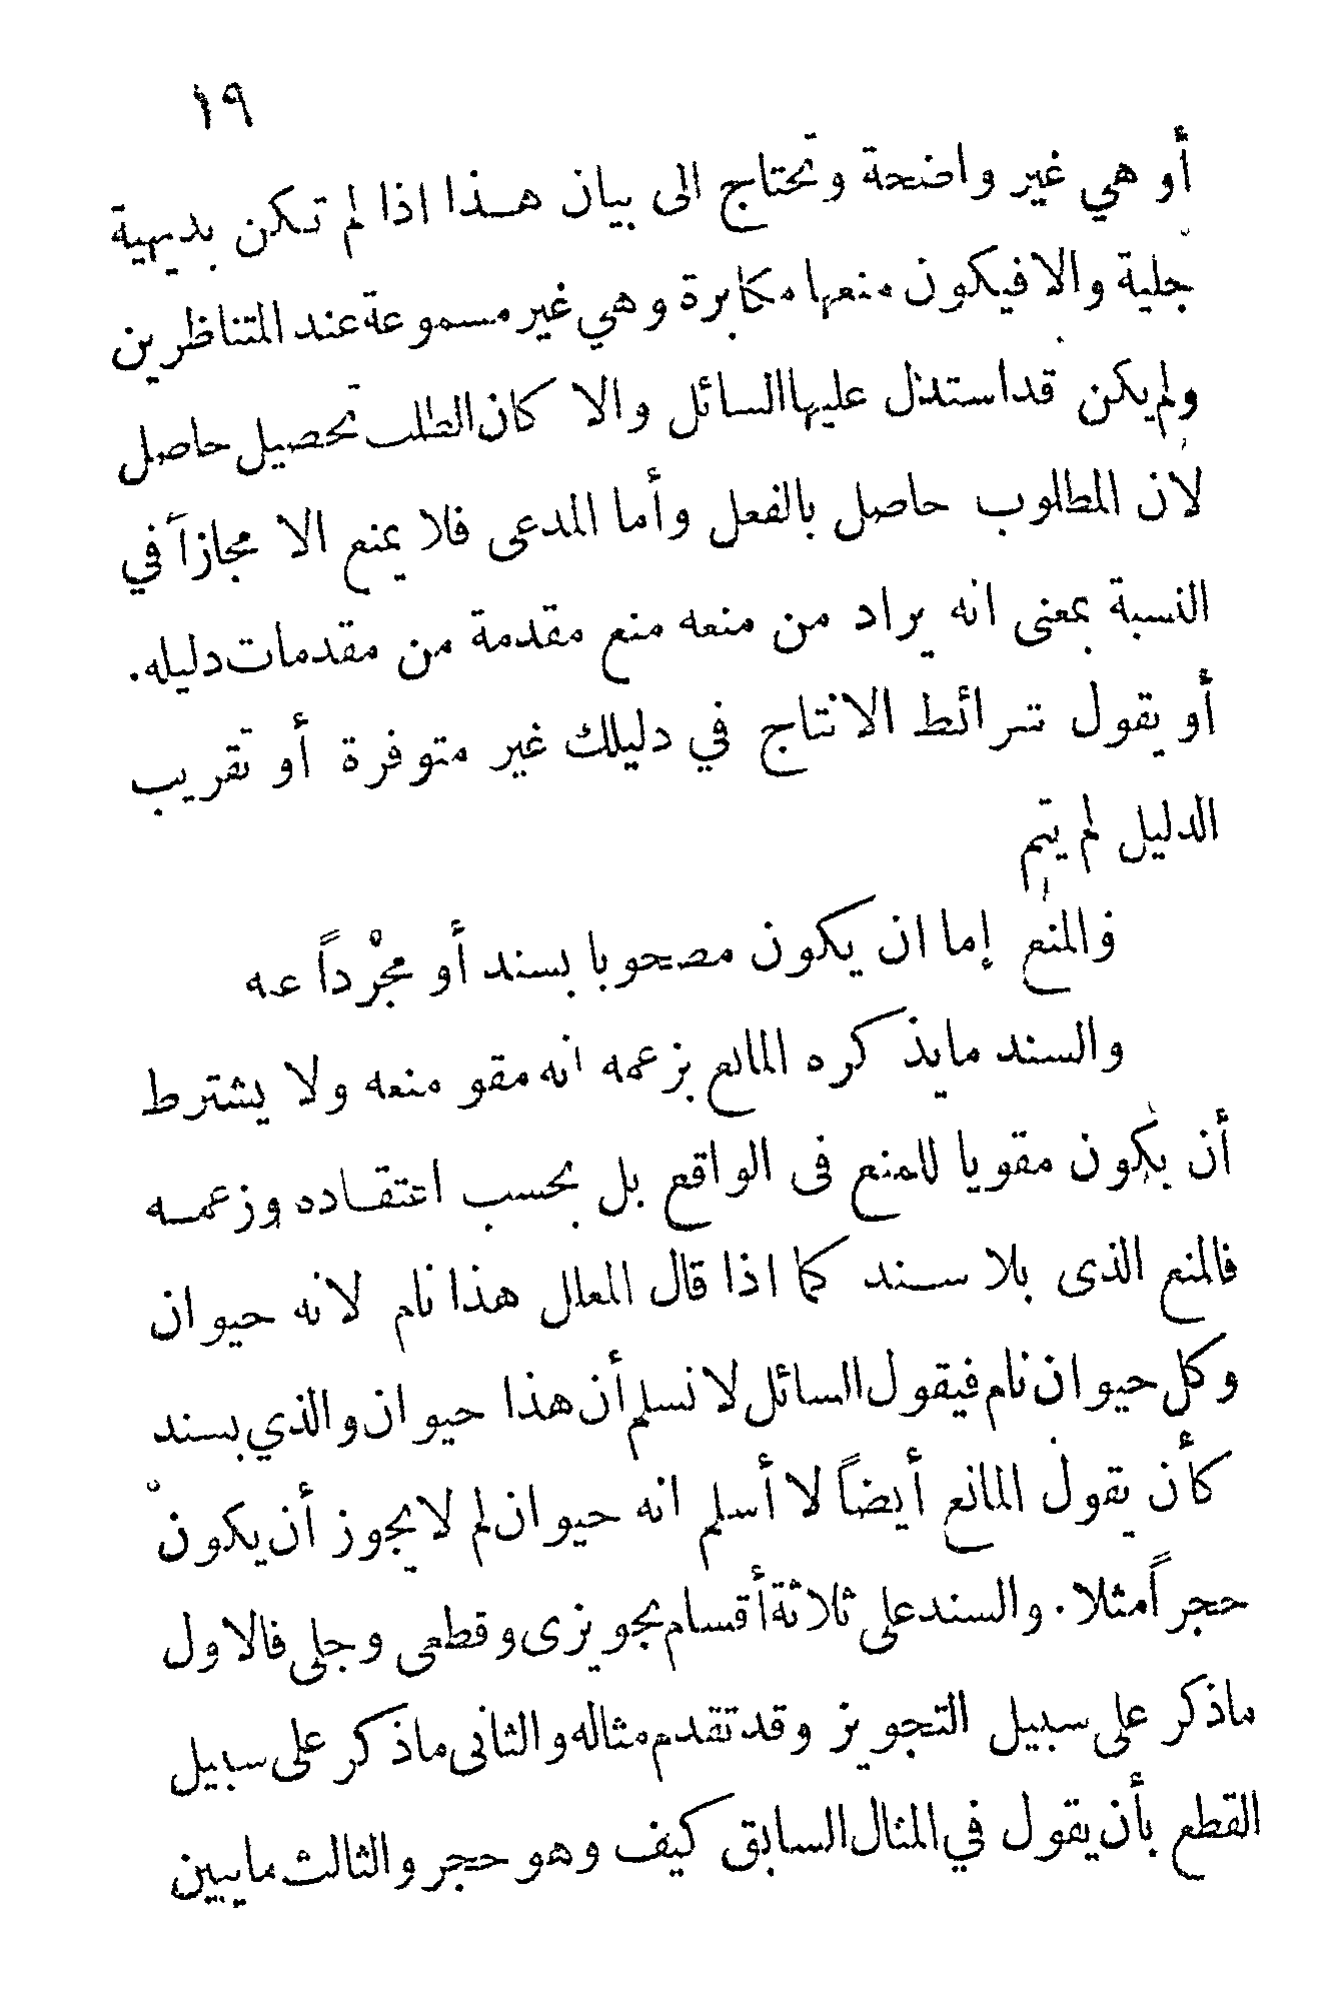 ١٩
أو هي غير واضحة وتحتاج الى بيان هذا اذا لم تكن بديهية
جلية والا فيكون منعها مكابرة وهي غير مسموعة عند المتناظرين
ولم يكن قد استدل عليها السائل والا كان الطلب تحصيل حاصل
لان المطلوب حاصل بالفعل وأما المدعى فلا يمنع الا مجازاً في
النسبة بمعنى انه يراد من منعه منع مقدمة من مقدمات دليله .
أو يقول شرائط الانتاج في دليلك غير متوفرة أو تقريب
الدليل لم يتم
والمنع إما ان يكون مصحوبا بسند أو مجرداً عنه
والسند ما يذكره المانع بزعمه انه مقو منعه ولا يشترط
أن يكون مقويا للمنع فى الواقع بل بحسب اعتقاده وزعمه
فالمنع الذى بلا سند كما اذا قال المعلل هذا نام لانه حيوان
وكل حيوان نام فيقول السائل لا نسلم أن هذا حيوان والذي بسند
كأن يقول المانع أيضاً لا أسلم انه حيوان لم لا يجوز أن يكون
حجراً مثلا . والسند على ثلاثة أقسام تجويزى وقطعى وجلى فالاول
ماذكر على سبيل التجويز وقد تقدم مثاله والثانى ماذكر على سبيل
القطع بأن يقول في المثال السابق كيف وهو حجر والثالث مايبين